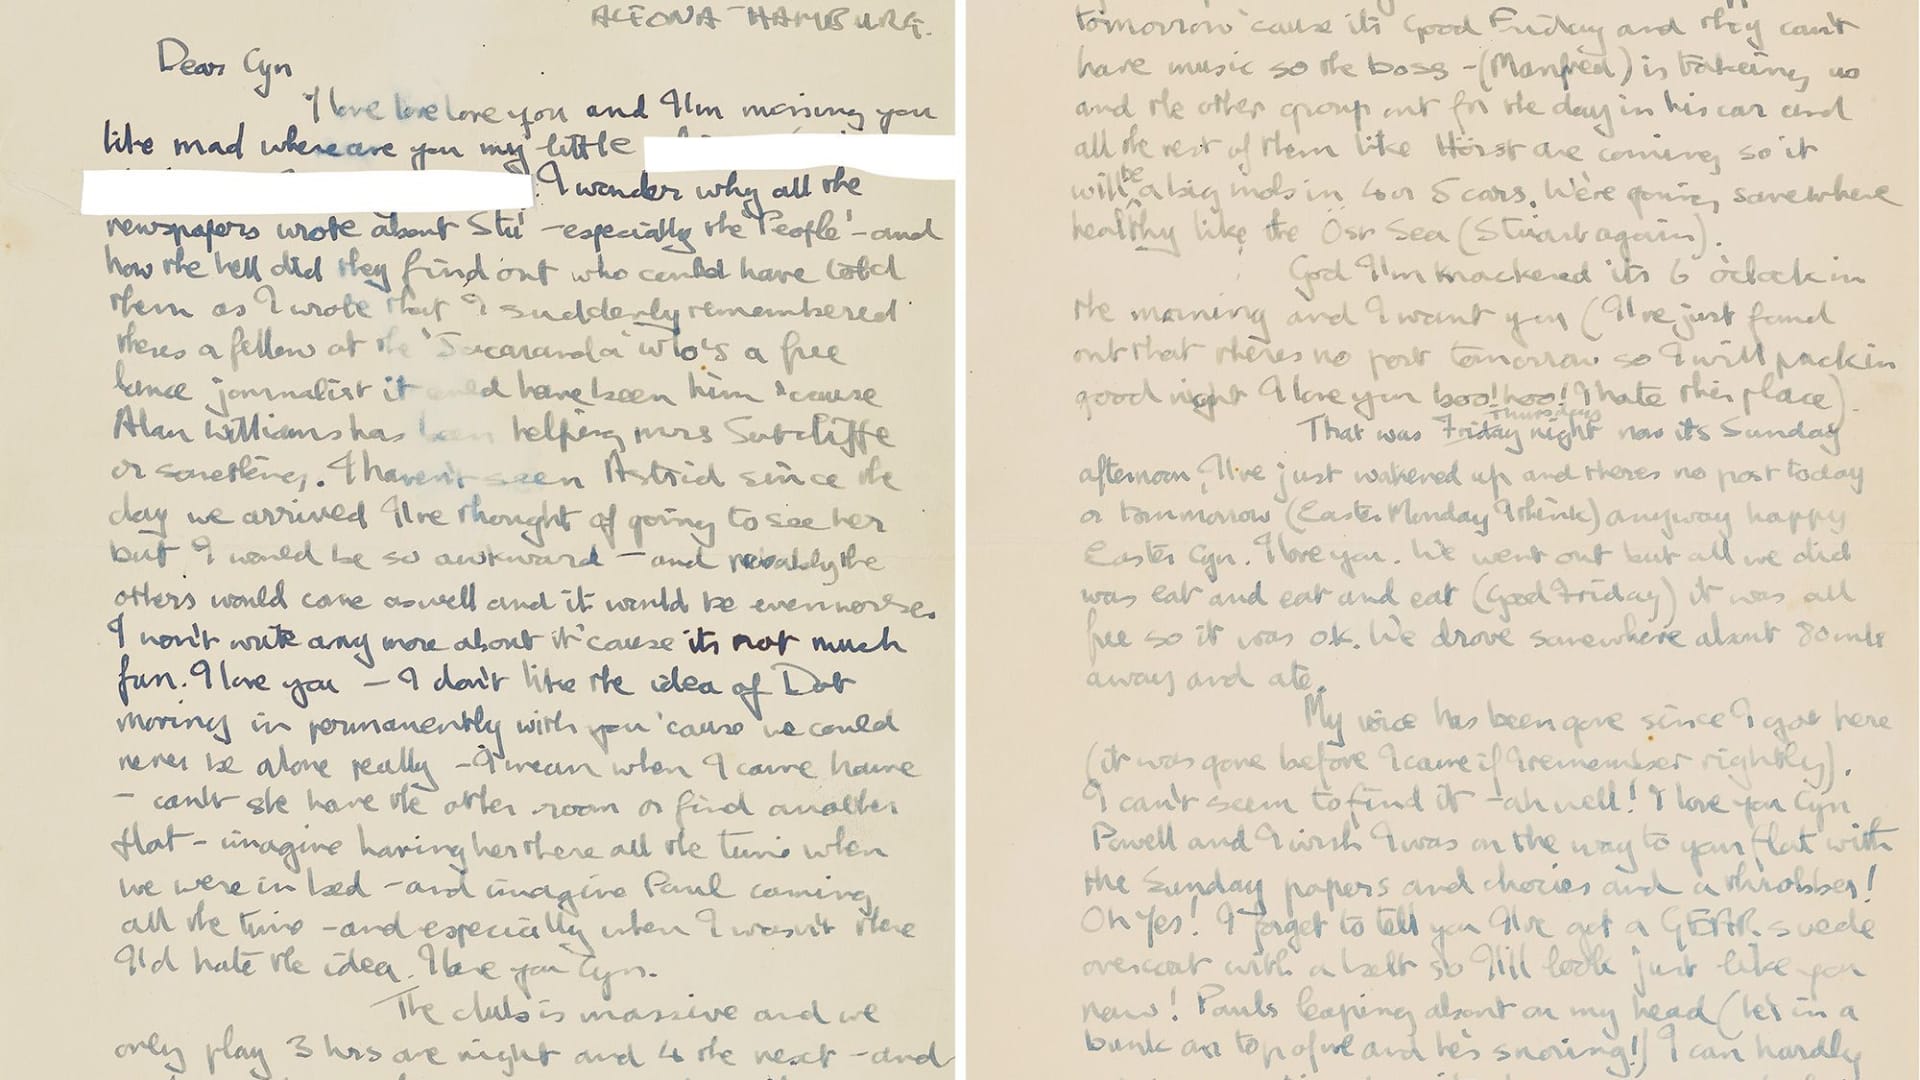 ALTONA HAMBURG.
Dear Cyn
I love love love you and I'm missing you
like mad where are you my little
I wonder why all the
newspapers wrote about Stu' - especially the 'People' - and
how the hell did they find out who could have told
them as I wrote that I suddenly remembered
theres a fellow at the 'Jacaranda' who's a free
lance journalist it could have been him 'cause
Alan Williams has been helping mrs Sutcliffe
or something. I haven't seen Astrid since the
day we arrived I've thought of going to see her
but I would be so awkward - and probably the
others would come aswell and it would be even worse.
I won't write any more about it 'cause its not much
fun. I love you - I don't like the idea of Dot
moving in permanently with you 'cause we could
never be alone really - I mean when I come home
- can't she have the other room or find another
flat - imagine having her there all the time when
we were in bed - and imagine Paul coming
all the time - and especially when I wasn't there
I'd hate the idea. I love you Cyn.
The club is massive and we
only play 3 hrs one night and 4 the next - and
tomorrow 'cause its Good Friday and they can't
have music so the boss - (Manfred) is takeing us
and the other group out for the day in his car and
all the rest of them like Hörst are coming so it
will be a big mob in 4 or 5 cars. We're going somewhere
healthy like the Öst Sea (Stuart again).
God I'm knackered its 6 o'clock in
the morning and I want you (I've just found
out that theres no post tomorrow so I will pack in
good night I love you boo! hoo! I hate this place).
Thursday
That was Friday night now its Sunday
afternoon, I've just wakened up and theres no post today
or tommorrow (Easter Monday I think) anyway happy
Easter Cyn. I love you. We went out but all we did
was eat and eat and eat (Good Friday) it was all
free so it was o.k. We drove somewhere about 80 mls
away and ate.
My voice has been gone since I got here
(it was gone before I came if I remember rightly).
I can't seem to find it - ah well! I love you Cyn
Powell and I wish I was on the way to your flat with
the Sunday papers and chocies and a throbber!
Oh Yes! I forgot to tell you I've got a GEAR suede
overcoat with a belt so I'll look just like you
now! Pauls leaping about on my head (he's in a
bunk on top of me and he's snoring!) I can hardly